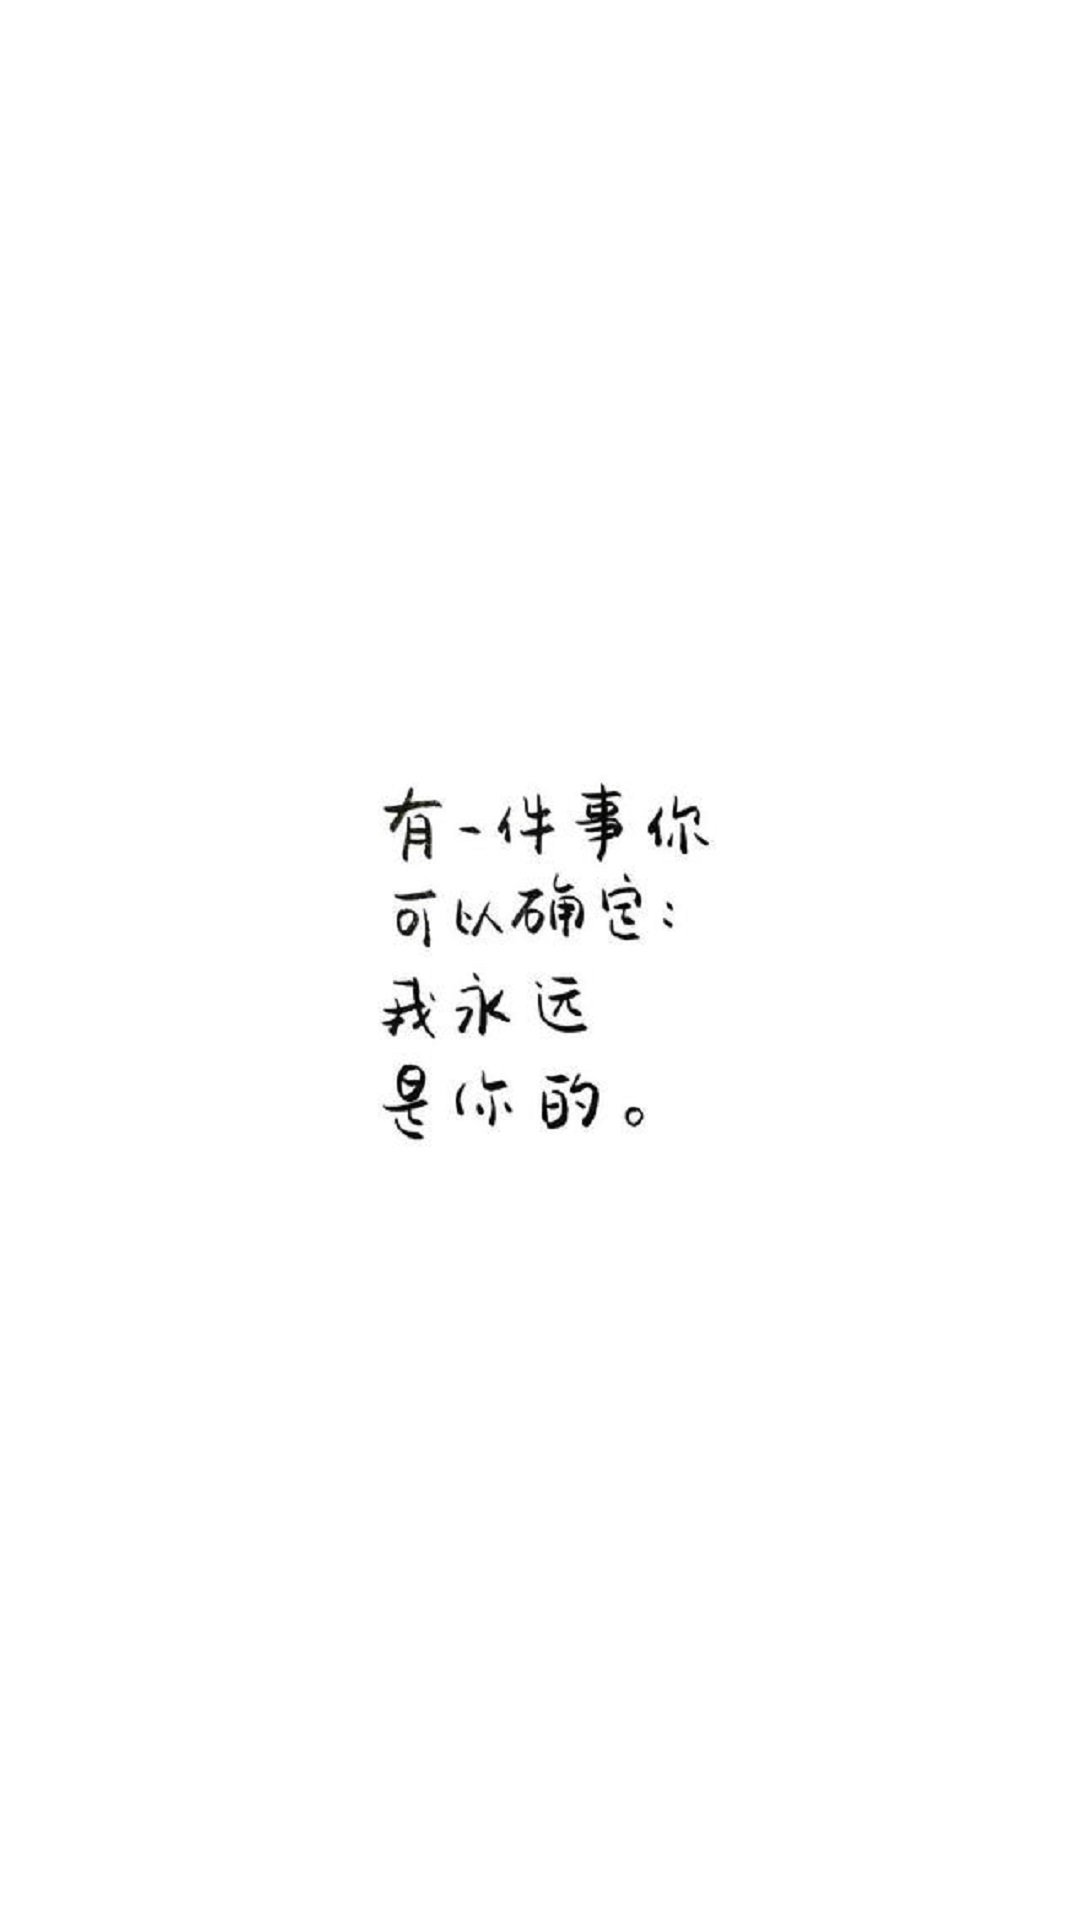 有一件事你
可以确定：
我永远
是你的。